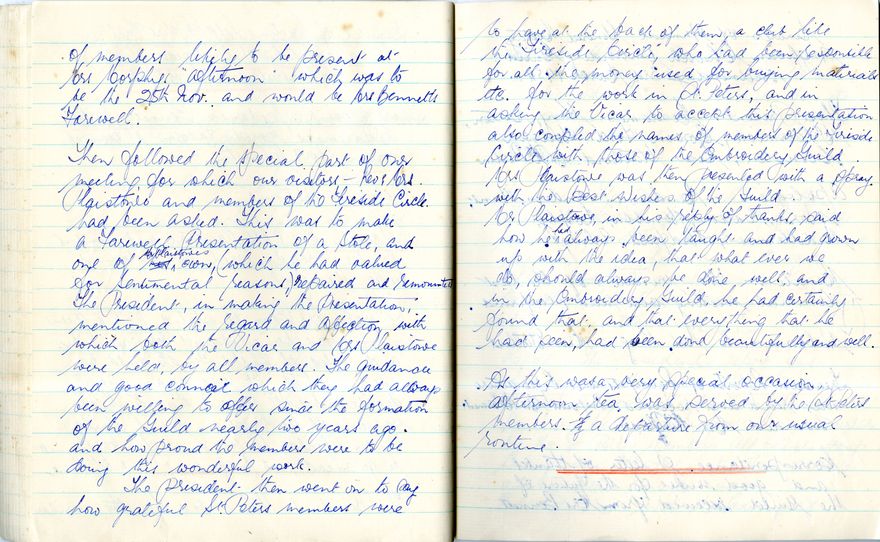 of members likely to be present at
Mrs Corphes "Afternoon" which was to
be the 25th Nov. and would be Mrs Bennetts
Farewell.
Then followed the special part of our
meeting for which our visitors — Rev & Mrs.
Plaistowe and members of the Fireside Circle
had been asked. This was to make
a Farewell Presentation of a Stole, and
one of Mr Plaistowe's own, (which he had valued
for sentimental reasons,) repaired and remounted
The President, in making the Presentation,
mentioned the regard and affection with
which both the Vicar and Mrs Plaistowe
were held, by all members. The guidance
and good council which they had always
been willing to offer since the formation
of the Guild nearly two years ago.
and how proud the members were to be
doing this wonderful work.
The president then went on to say
how grateful St Peters members were
to have at the back of them, a club like
the Fireside Circle, who had been responsible
for all the money used for buying materials
etc. for the work in St. Peters, and in
asking the Vicar to accept this presentation
also coupled the names of members of the Fireside
Circle with those of the Embroidery Guild.
Mrs Plaistowe was then presented with a spray.
with the Best Wishes of the Guild.
Mr Plaistowe, in his reply of thanks, said
how he had always been taught and had grown
up with the idea, that what ever we
do, should always be done well, and
in the Embroidery Guild, he had certainly
found that. and that everything that he
had seen, had been done beautifully and well.
As this was a very special occasion
afternoon tea was served by the St Peters
members. a departure from our usual
routine.